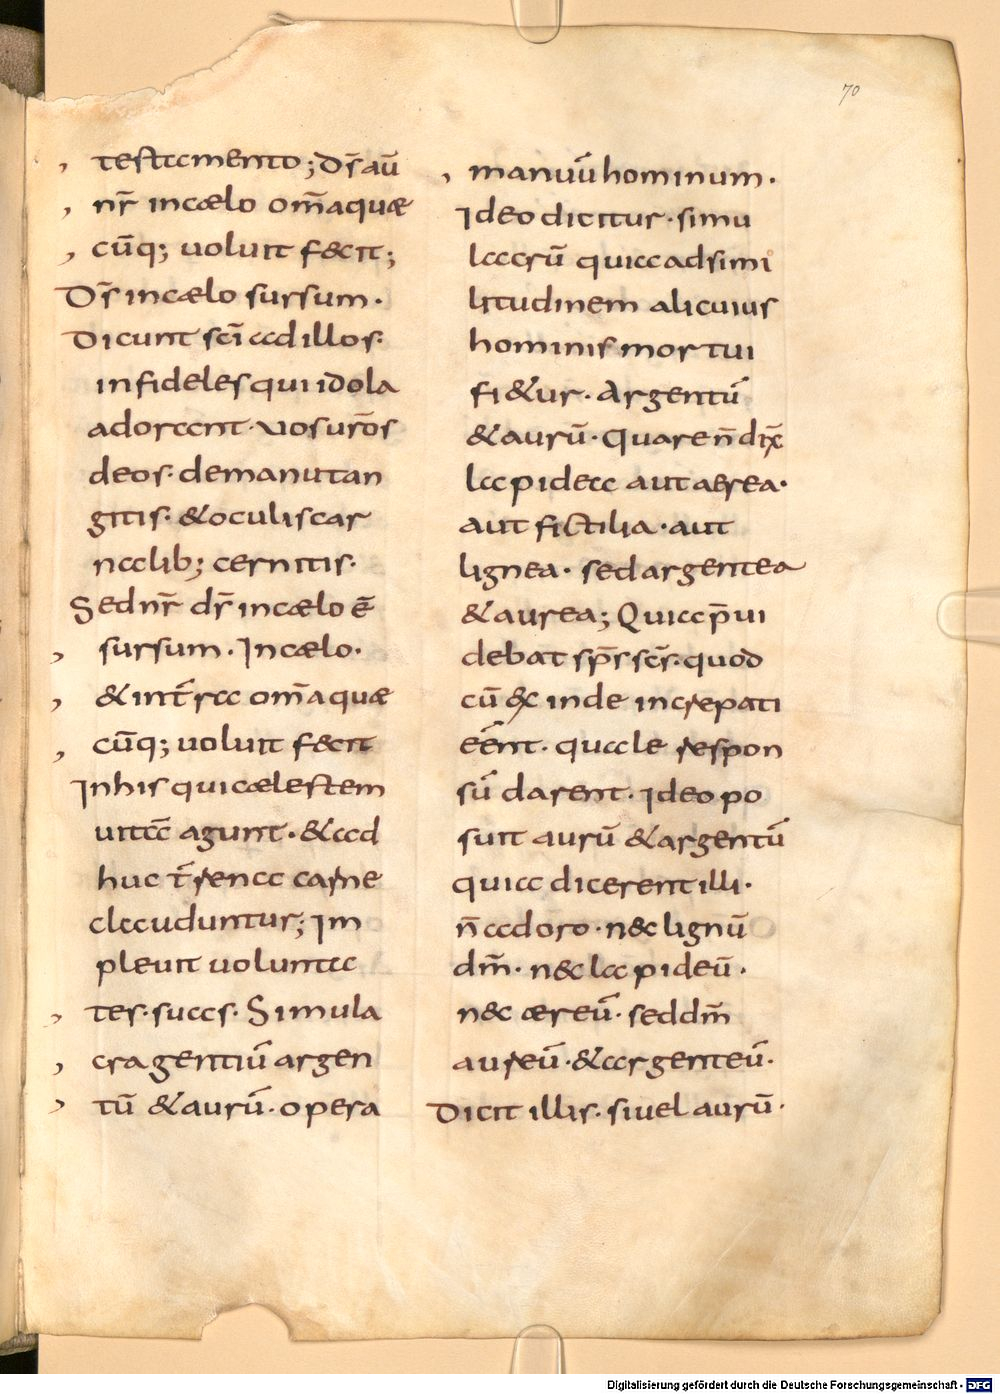 70
testamento; Ds̄ aū
nr̄ incælo om̄aquæ
cūq; uoluit fecit;
Ds̄ incælo sursum.
Dicunt sc̄i ad illos.
infideles qui idola
adorant. Uos ur̄os
deos. demanu tan
gitis. & oculis car
nalib; cernitis.
Sed nr̄ ds̄ incælo ē
sursum. Incælo.
& int̄ra om̄aquæ
cūq; uoluit fecit
Inhis qui cælestem
uitā agunt. & ad
huc t̄rena carne
clauduntur; Im
pleuit uolunta
tes. suas. Simula
cra gentiū argen
tū & aurū. opera
manuū hominum.
Ideo dicitur. simu
lacrū quia adsimi
litudinem alicuius
hominis mortui
fi&ur. Argentū
& aurū. Quare n̄ dix̄
lapidea aut aerea.
aut fictilia. aut
lignea. sed argentea
& aurea; Quia p̄ui
debat sp̄s sc̄s. quod
cū & inde increpati
eēnt. quale respon
sū darent. Ideo po
suit aurū & argentū
quia dicerent illi.
n̄ adoro. nec lignū
dm̄. nec lapideū.
nec æreū. sed dm̄
aureū. & argenteū.
Dicit illis. siuel aurū.
Digitalisierung gefördert durch die Deutsche Forschungsgemeinschaft - DFG